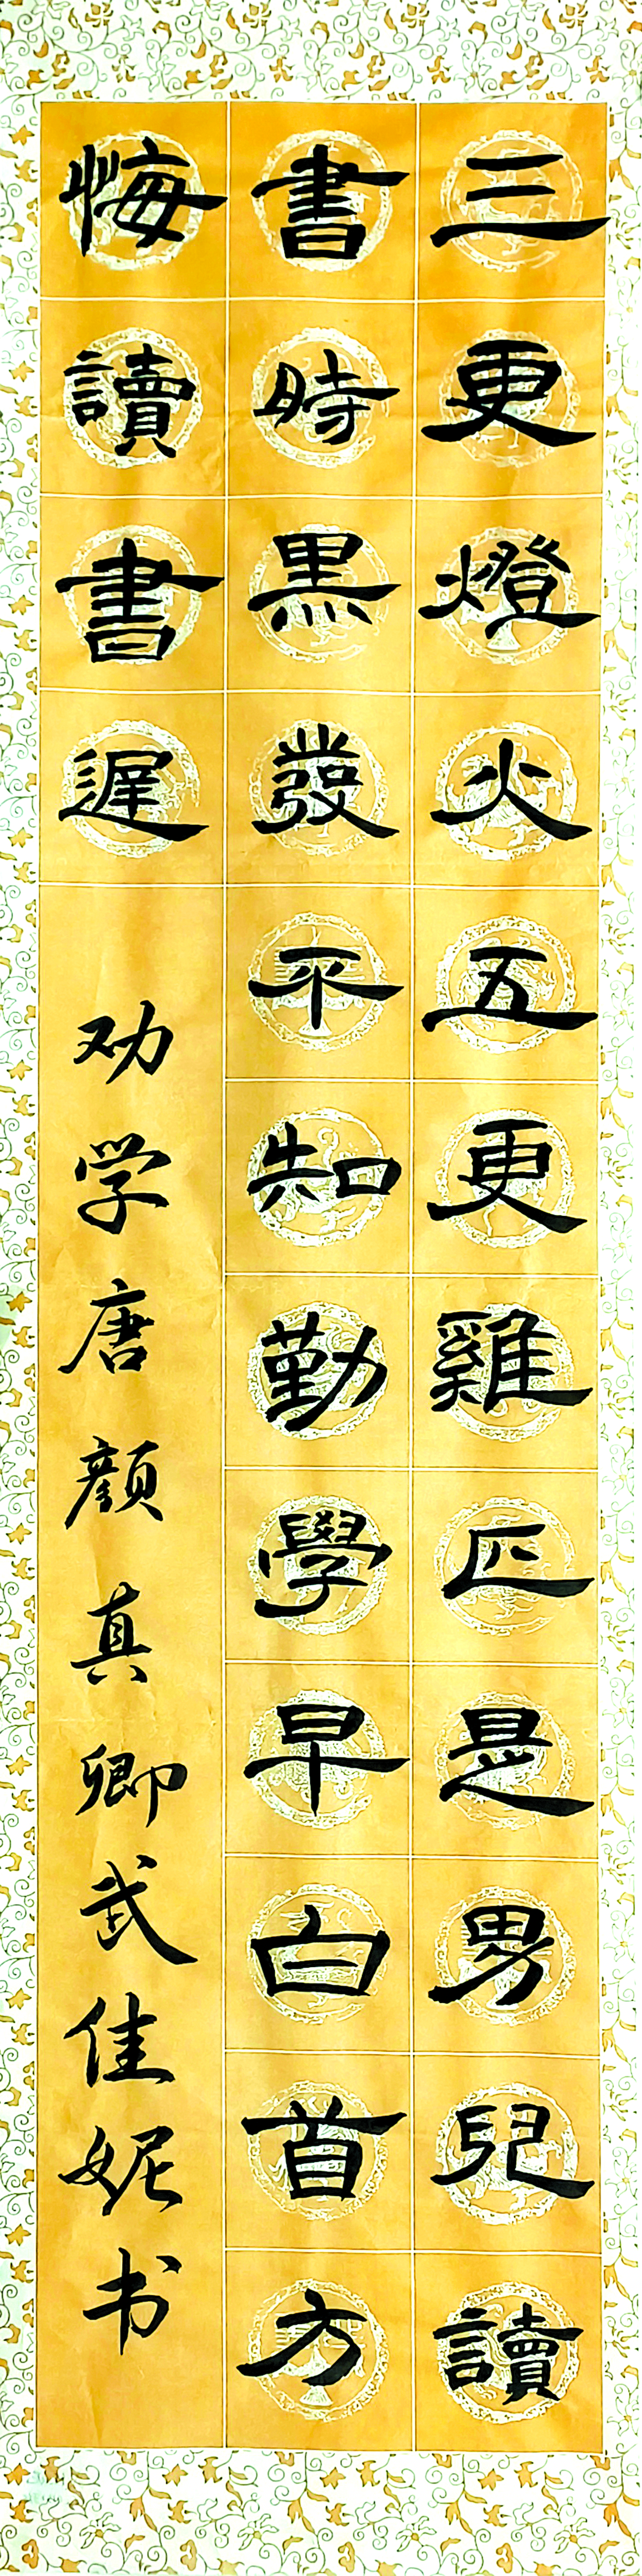 三更燈火五更雞正是男兒讀
書時黑發不知勤學早白首方
悔讀書遲
劝学唐顔真卿武佳妮书